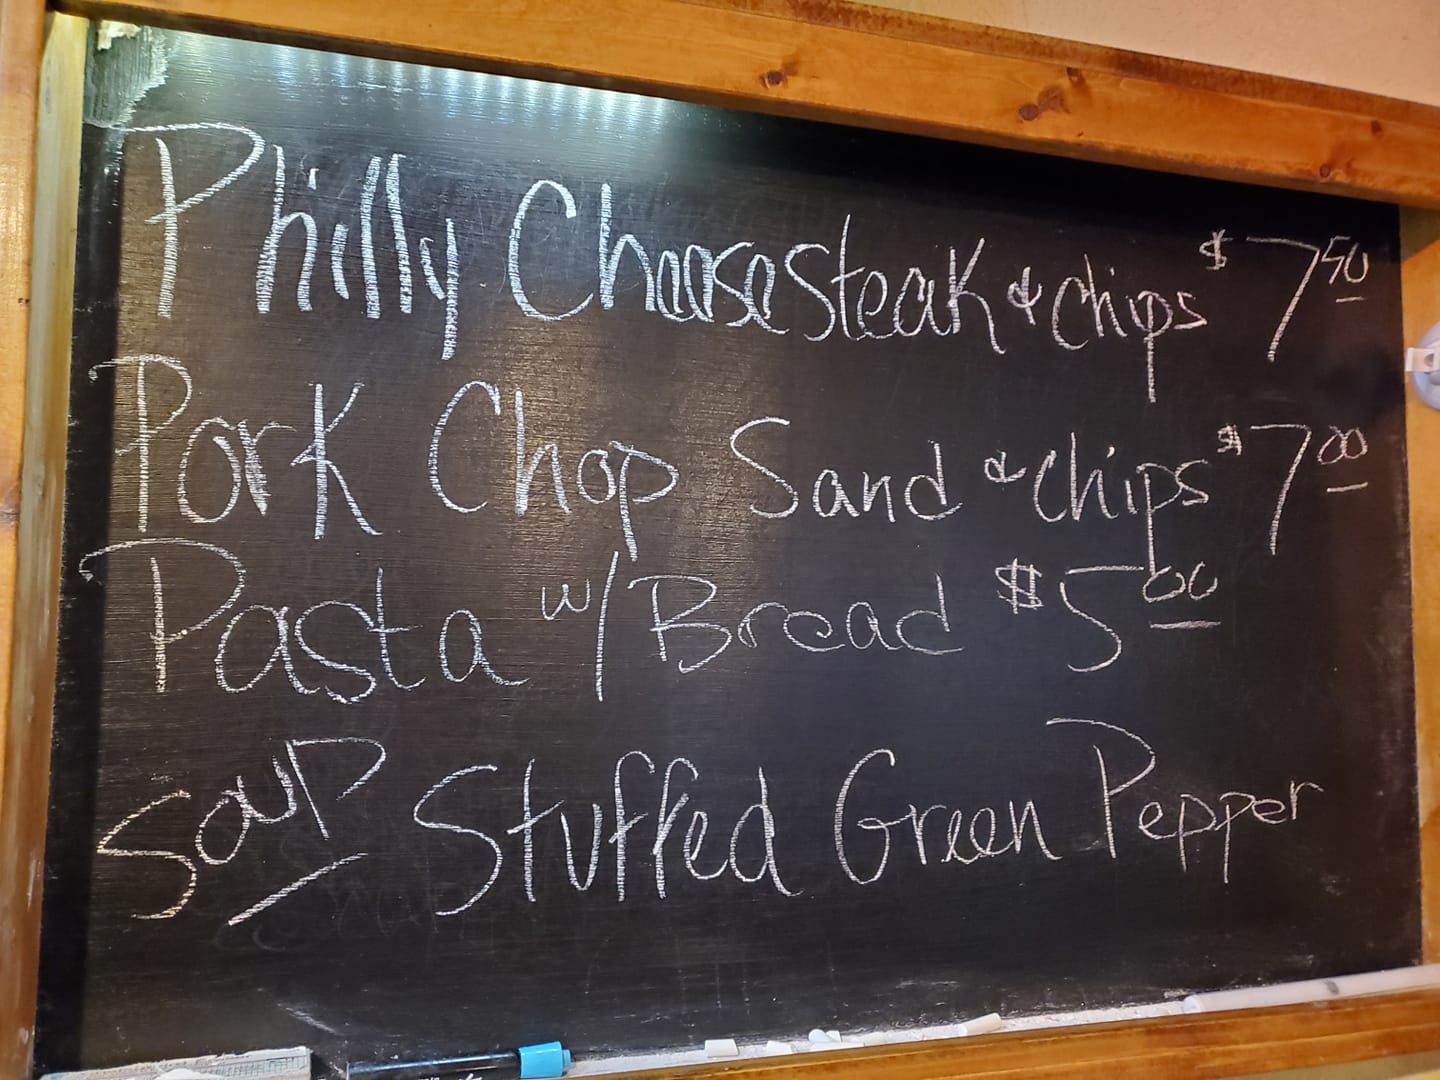 Philly Cheesesteak & chips $7.50
Pork Chop Sand & chips $7.00
Pasta w/ Bread $5.00
Soup Stuffed Green Pepper